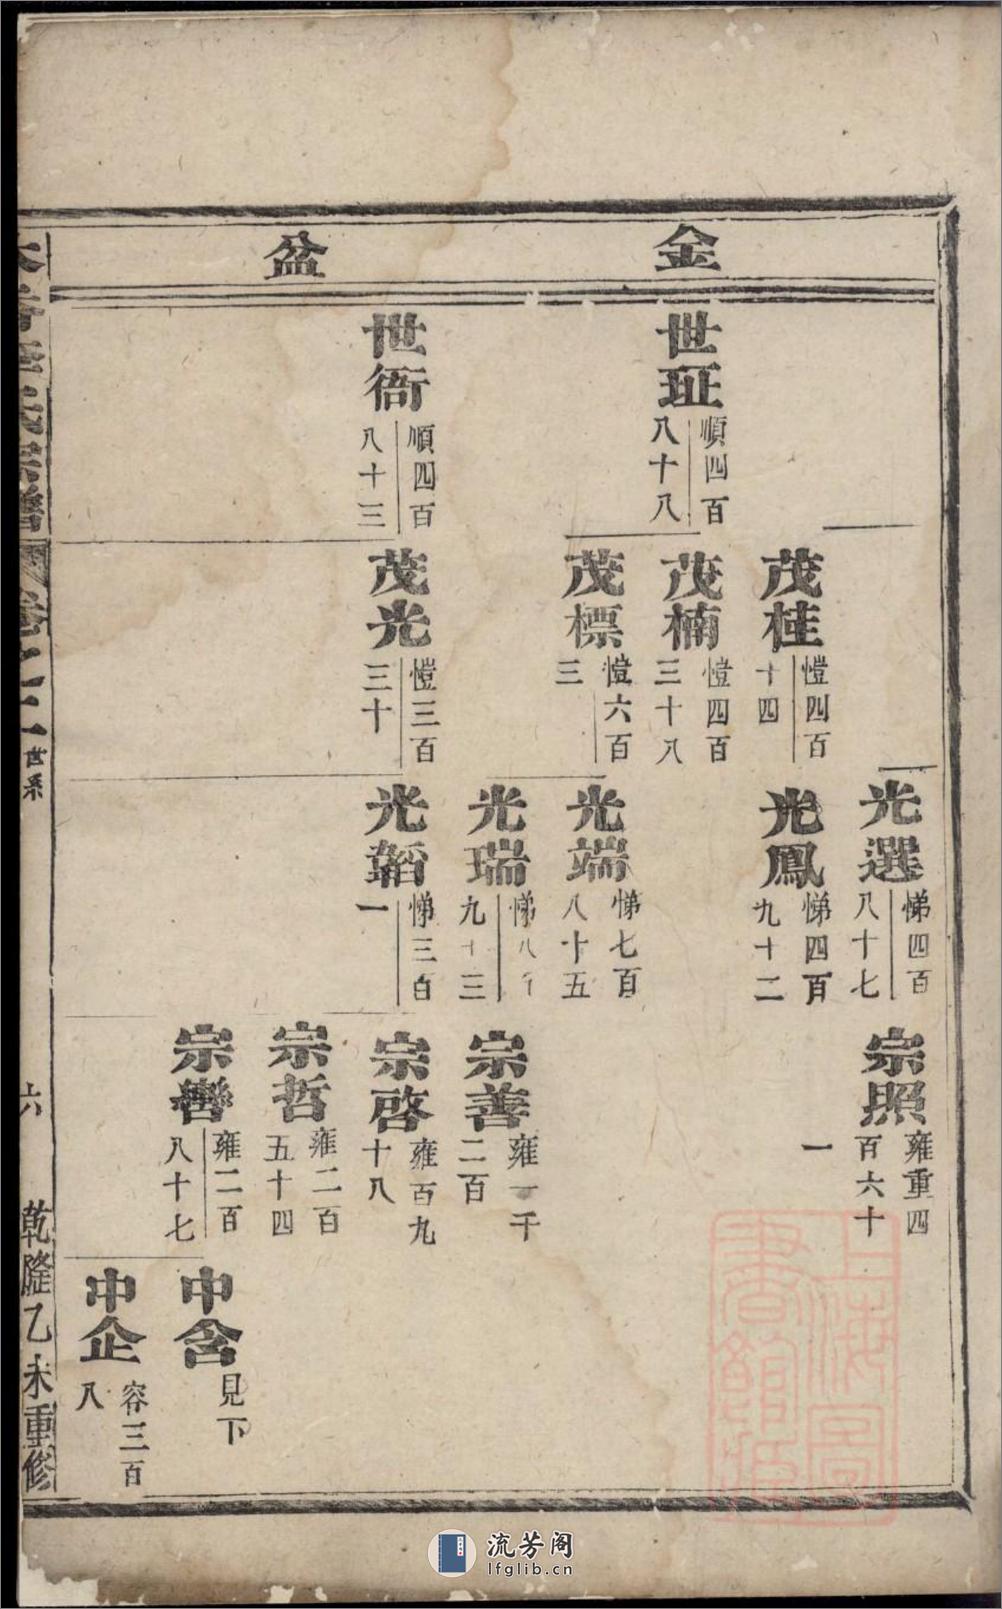 金 盆
世琔 順四百八十八
世衙 順四百八十三
茂桂 愷四百十四
茂楠 愷四百三十八
茂標 愷六百三
茂光 愷三百三十
光選 悌四百八十七
光鳳 悌四百九十二
光端 悌七百八十五
光瑞 悌八百九十三
光韜 悌三百一
宗照 雍重四百六十一
宗善 雍一千二百
宗啓 雍百九十八
宗哲 雍二百五十四
宗轡 雍二百八十七
中含 見下
中企 容三百八
氏宗譜 卷之二 世系
六
乾隆乙未重修
上海圖書館藏
流芳阁
lfglib.cn